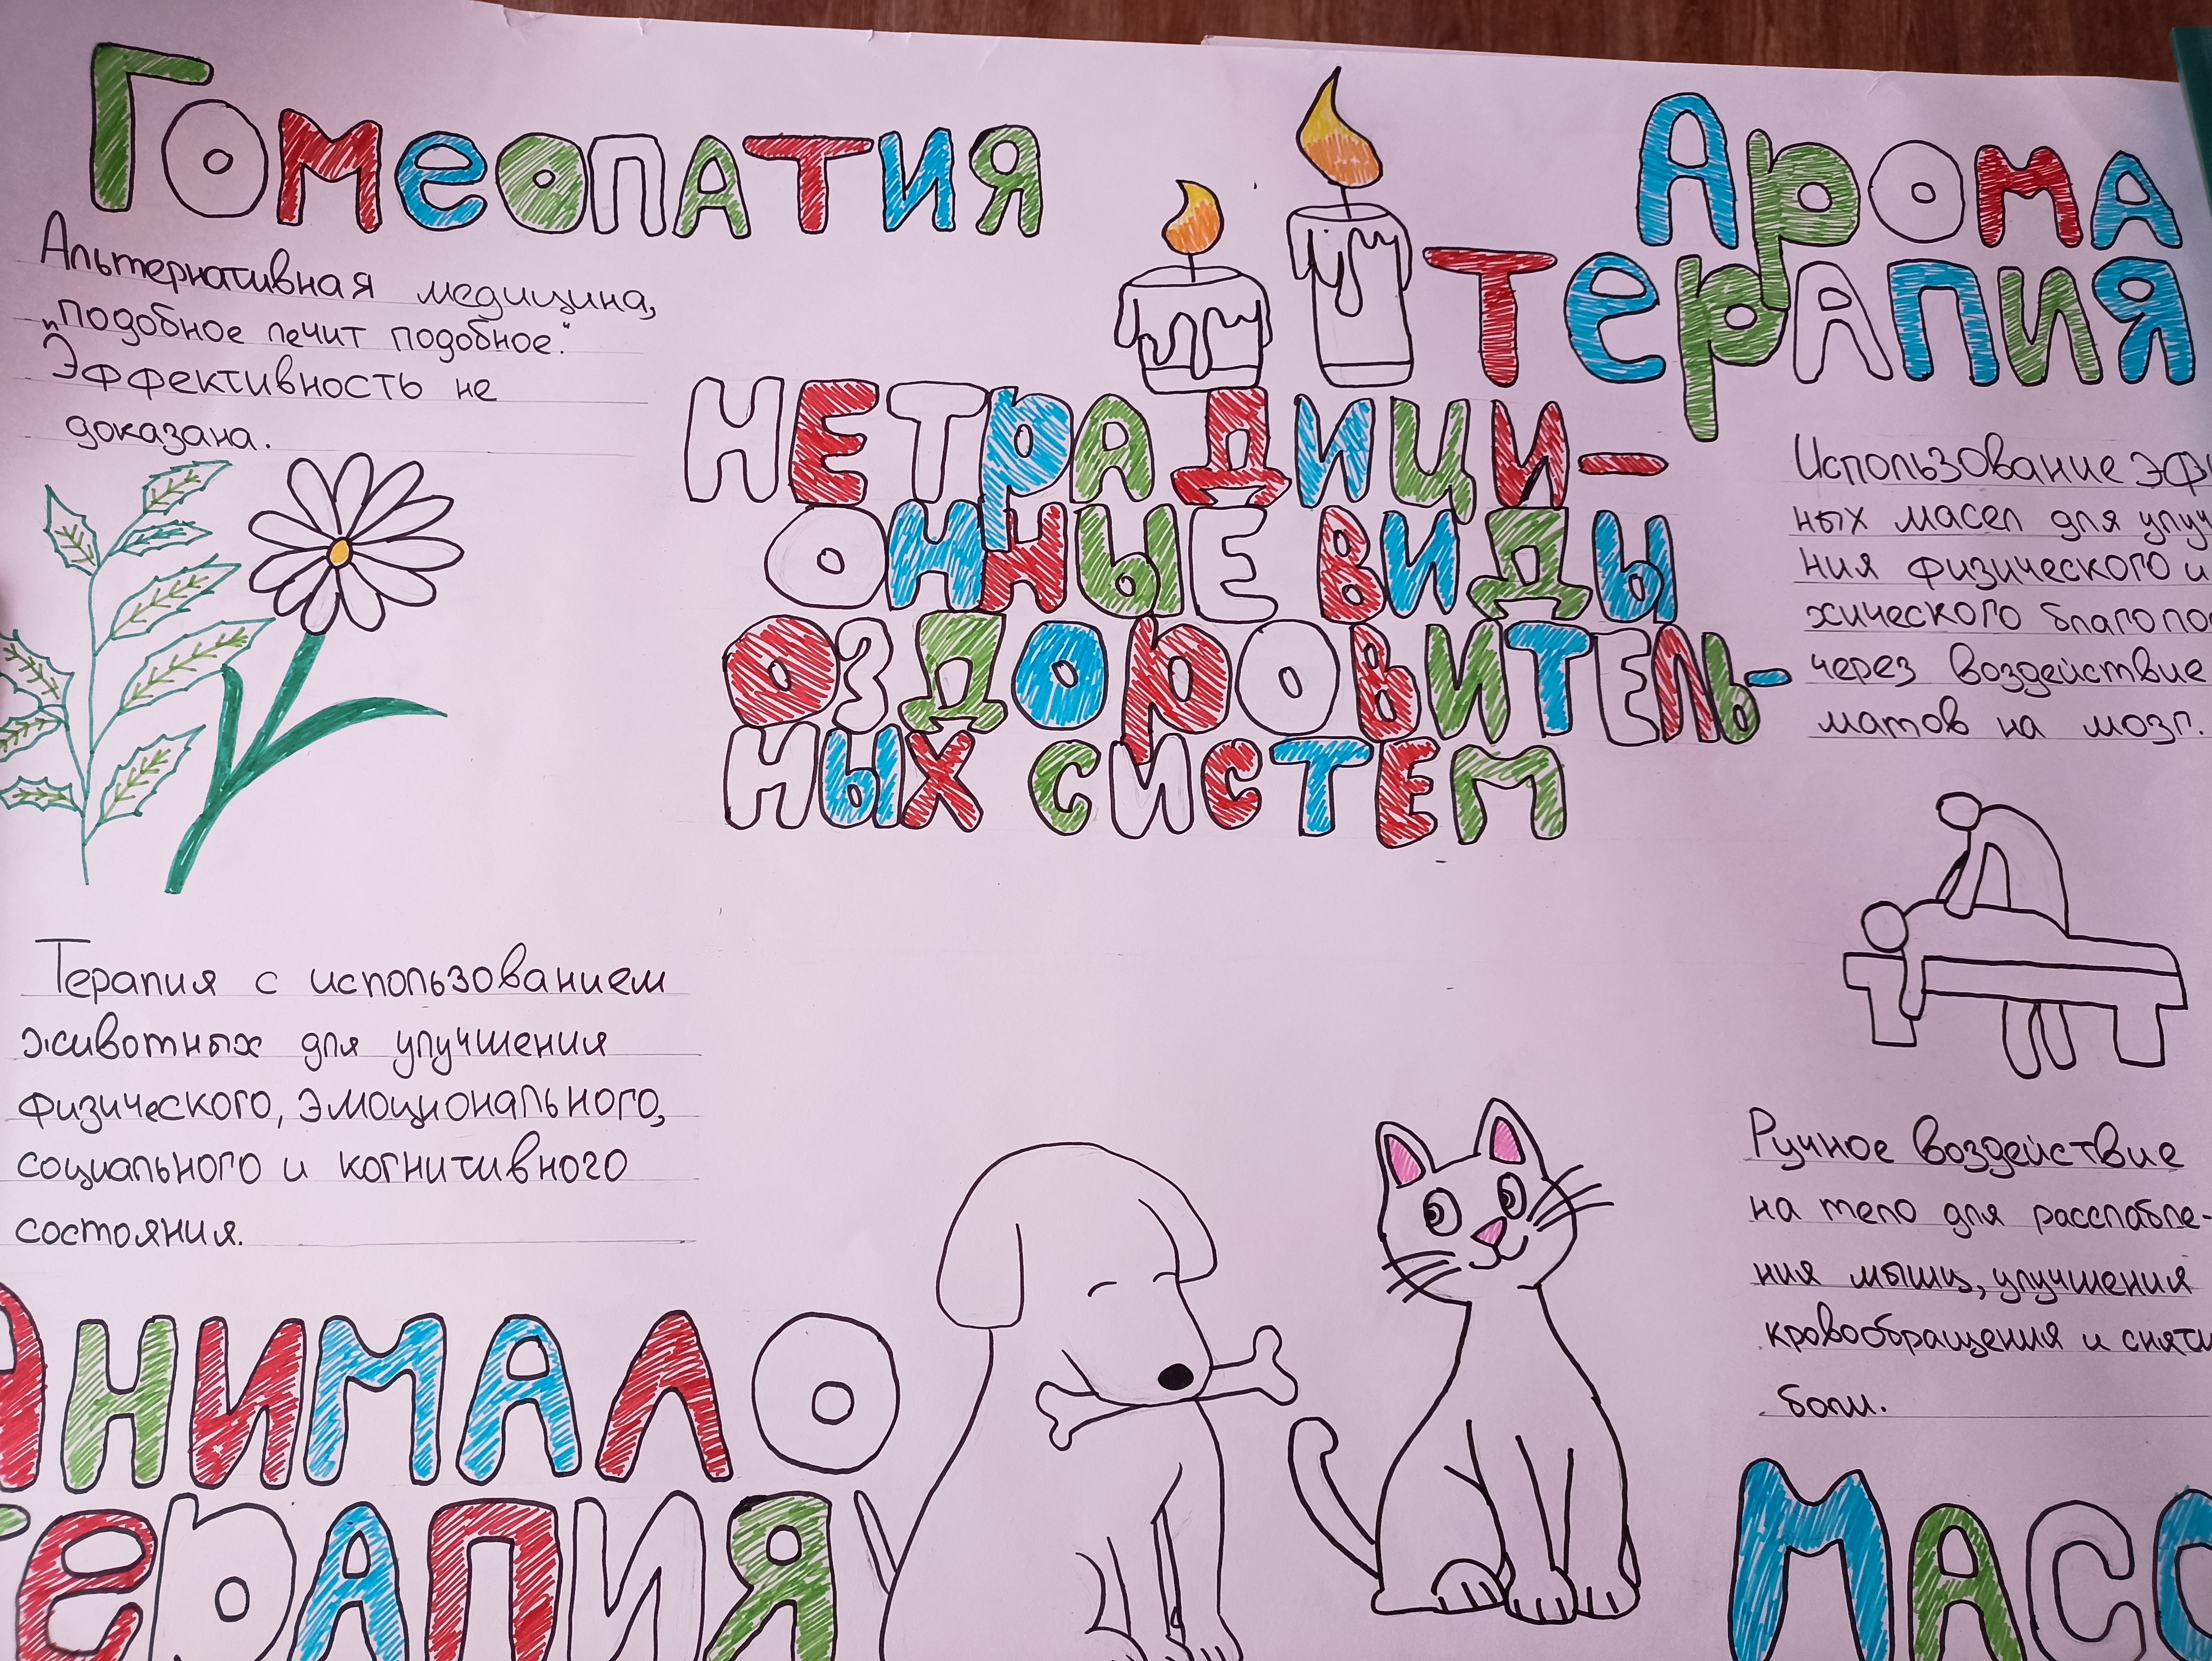 Гомеопатия
Альтернативная медицина,
"подобное лечит подобное."
Эффективность не
доказана.
Арома
терапия
НЕТРАДИЦИ-
ОННЫЕ ВИДЫ
ОЗДОРОВИТЕЛЬ-
НЫХ СИСТЕМ
Использование
ных масел для
ния физического и
хического
через воздействие
матов на мозг.
Терапия с использованием
животных для улучшения
физического, эмоционального,
социального и когнитивного
состояния.
Анимало
терапия
Ручное воздействие
на тело для расслабле-
ния мышц, улучшения
кровообращения и
боли.